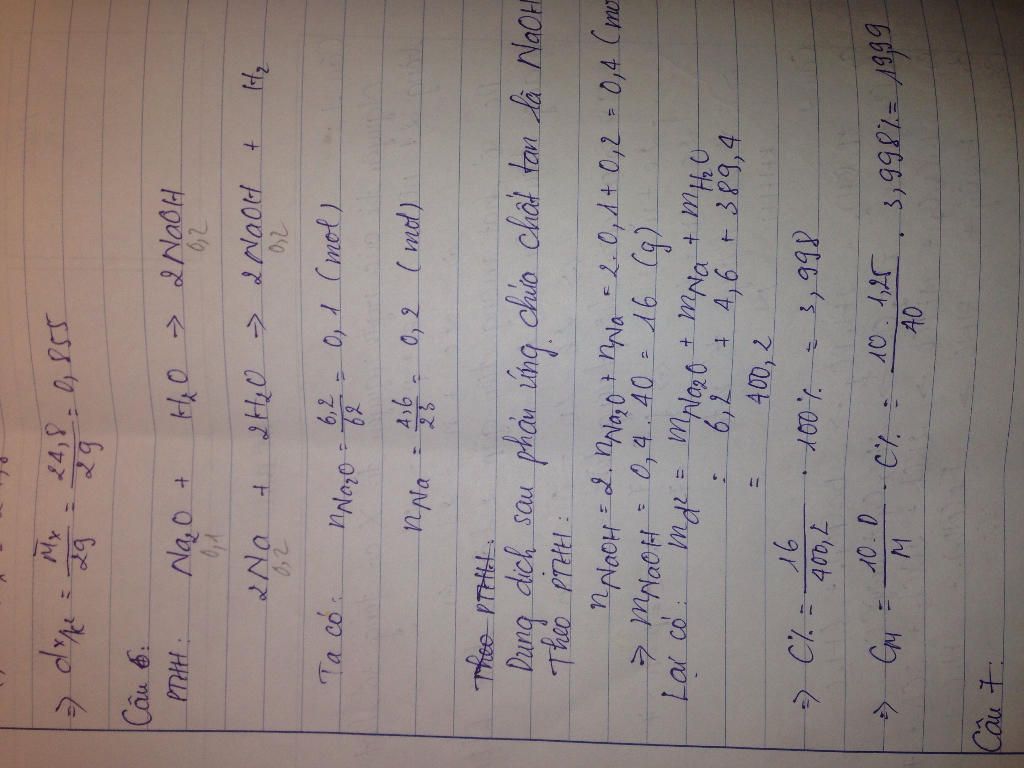 ⇒ dx/kk = Mx/29 = 24,8/29 = 0,855
Câu 6:
PTHH: Na2O + H2O → 2NaOH
0,1 0,2
2Na + 2H2O → 2NaOH + H2
0,2 0,2
Ta có: nNa2O = 6,2/62 = 0,1 (mol)
nNa = 4,6/23 = 0,2 (mol)
Theo PTHH:
Dung dịch sau phản ứng chứa chất tan là NaOH
Theo PTHH:
nNaOH = 2. nNa2O + nNa = 2. 0,1 + 0,2 = 0,4 (mol
⇒ mNaOH = 0,4 . 40 = 16 (g)
Lại có: mdd = mNa2O + mNa + mH2O
= 6,2 + 4,6 + 389,4
= 400,2
⇒ C% = 16/400,2 . 100% = 3,998
⇒ CM = 10.D/M . C% = 10.1,25/40 . 3,998% = 19,99
Câu 7: